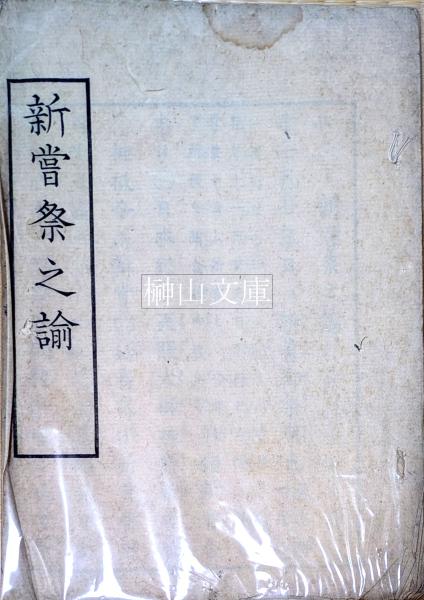 新嘗祭之諭
榊山文庫